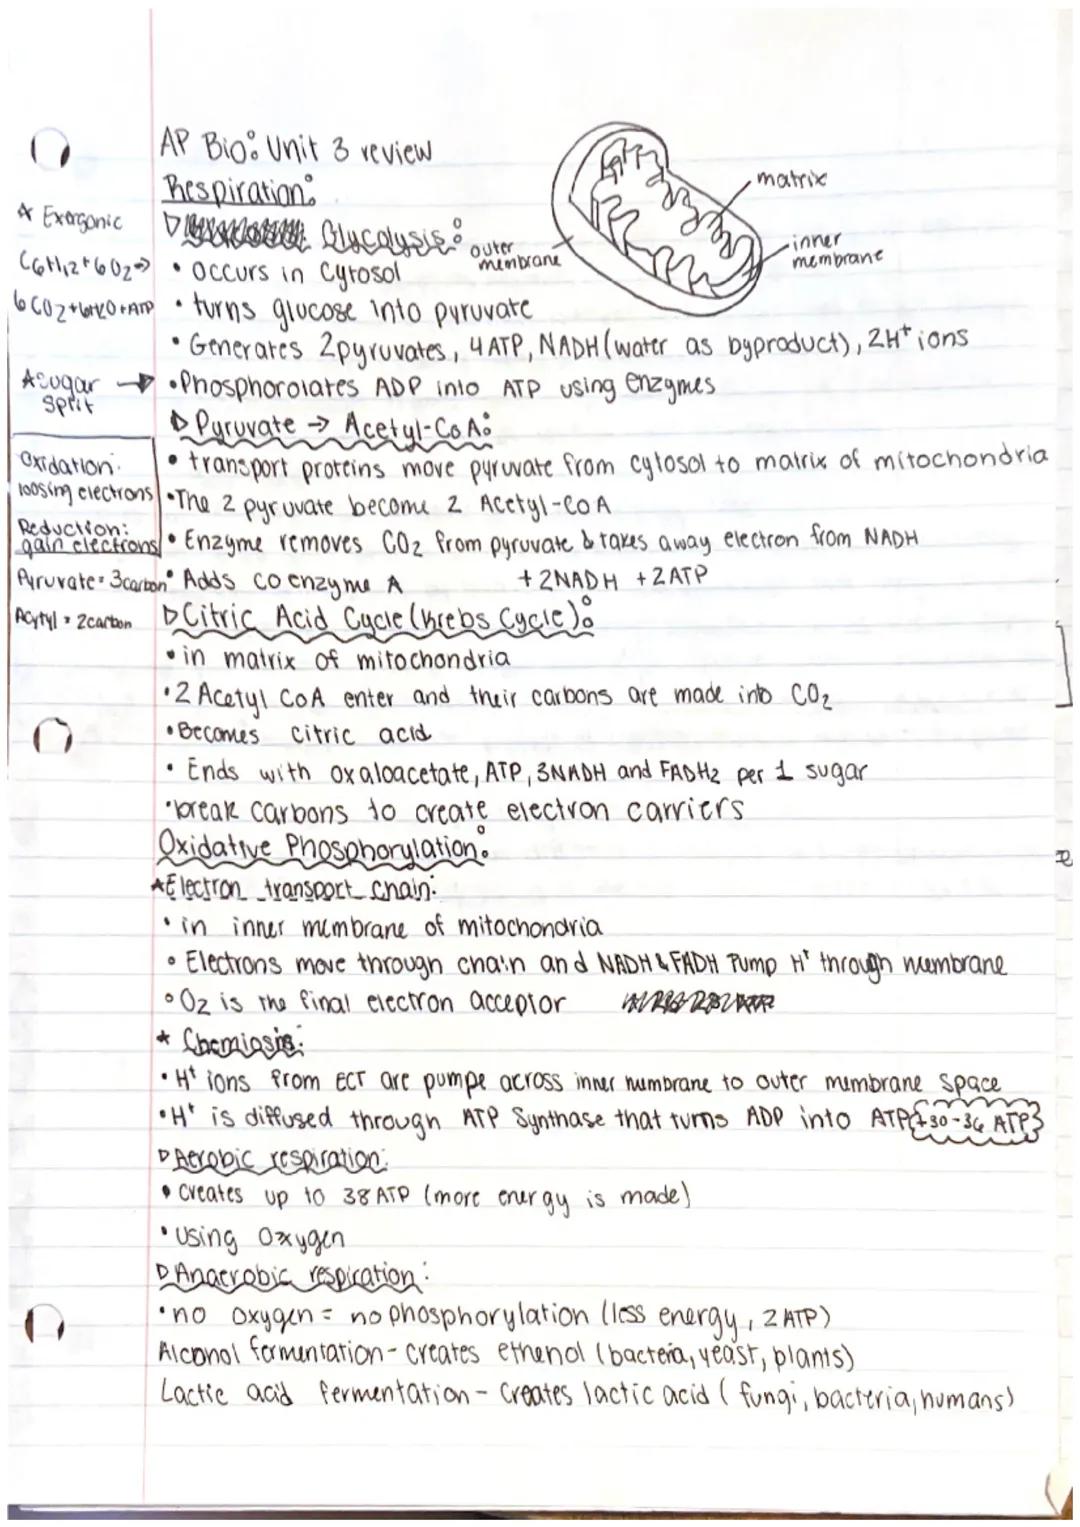 AP Bio: Unit 3 review
Respiration:
* Exergonic
C6H12+6O2→
6CO2+6H2O+ATP
▷ Glycolysis:
outer
membrane
matrix
inner
membrane
• occurs in cytosol
• turns glucose into pyruvate
• Generates 2pyruvates, 4 ATP, NADH (water as byproduct), 2H+ ions
*sugar
split → • Phosphorolates ADP into ATP using enzymes
▷ Pyruvate → Acetyl-CoA:
Oxidation:
loosing electrons
Reduction:
gain electrons
Pyruvate = 3carbon
Acytyl = 2carbon
• transport proteins move pyruvate from cytosol to matrix of mitochondria
• The 2 pyruvate become 2 Acetyl-CoA
• Enzyme removes CO2 from pyruvate & takes away electron from NADH
• Adds coenzyme A + 2NADH + 2ATP
▷ Citric Acid Cycle (Krebs Cycle):
• in matrix of mitochondria
• 2 Acetyl CoA enter and their carbons are made into CO2
• Becomes citric acid
• Ends with oxaloacetate, ATP, 3NADH and FADH2 per 1 sugar
• break carbons to create electron carriers
Oxidative Phosphorylation:
*Electron transport chain:
• in inner membrane of mitochondria
• Electrons move through chain and NADH & FADH Pump H+ through membrane
• O2 is the final electron acceptor
* Chemiosis:
• H+ ions from ECT are pumpe across inner membrane to outer membrane space
• H+ is diffused through ATP Synthase that turns ADP into ATP {+30-36 ATP}
▷ Aerobic respiration:
• creates up to 38 ATP (more energy is made)
• using Oxygen
▷ Anaerobic respiration:
• no oxygen = no phosphorylation (less energy, 2 ATP)
Alcohol fermentation - creates ethenol (bacteria, yeast, plants)
Lactic acid fermentation - Creates lactic acid (fungi, bacteria, humans)